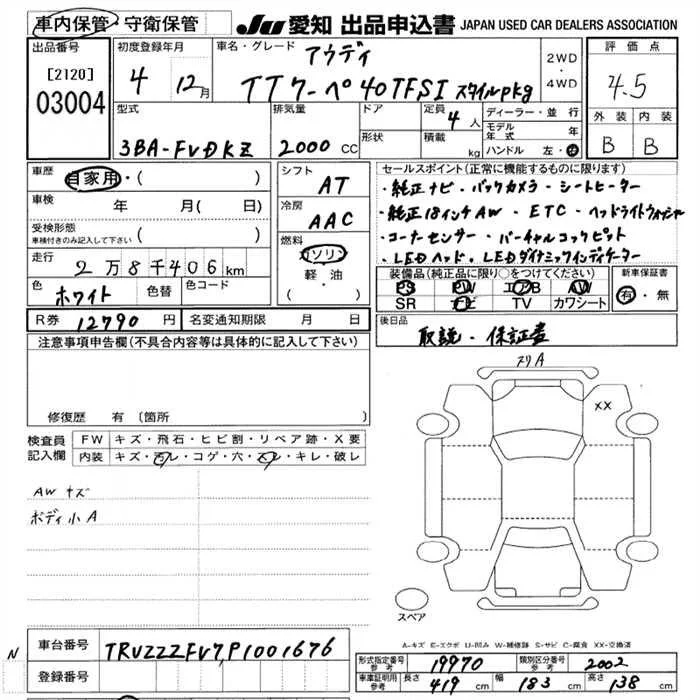 車内保管・守衛保管 JU 愛知 出品申込書 JAPAN USED CAR DEALERS ASSOCIATION
出品番号 [2120] 03004
初度登録年月 4 12月
車名・グレード アウディ
TTクーペ40TFSI スタイルpkg
2WD・4WD
評価点 4.5
外装 内装
B B
型式 3BA-FVDKZ
排気量 2000 CC
ドア 形状
定員 4人
積載 kg
ディーラー・並行
モデル年式 年
ハンドル 左・右
車歴 自家用・( )
車検 年 月( 日)
受検形態 車検付きのみ記入して下さい ( )
走行 2万8千406km
色 ホワイト 色替 色コード
シフト AT
冷房 AAC
燃料 ガソリン 軽・油 ( )
セールスポイント(正常に機能するものに限ります)
・純正ナビ・バックカメラ・シートヒーター
・純正18インチAW・ETC・ヘッドライトウォッシャ
・コーナーセンサー・バーチャルコックピット
・LEDヘッド・LEDダイナミックインディケーター
装備品(純正品に限り○をつけてください)
PS PW エアB AW
SR ナビ TV カワシート
新車保証書 有・無
R券 12790 円 名変通知期限 月 日
後日品 取説・保証書
注意事項申告欄(不具合内容等は具体的に記入して下さい)
修復歴 有 〔箇所
検査員記入欄
FW キズ・飛石・ヒビ割・リペア跡・X要
内装 キズ・汚レ・コゲ・穴・スレ・キレ・破レ
AW キズ
ボディ小A
スリA
XX
スペア
A-キズ E-エクボ U-凹み W-補修跡 S-サビ C-腐食 XX-交換済
N
車台番号 TRUZZZFV7P1001676
登録番号
形式指定番号 参考 19970 類別区分番号 参考 2002
車庫証明用 参考 長さ 419 cm 幅 183 cm 高さ 138 cm